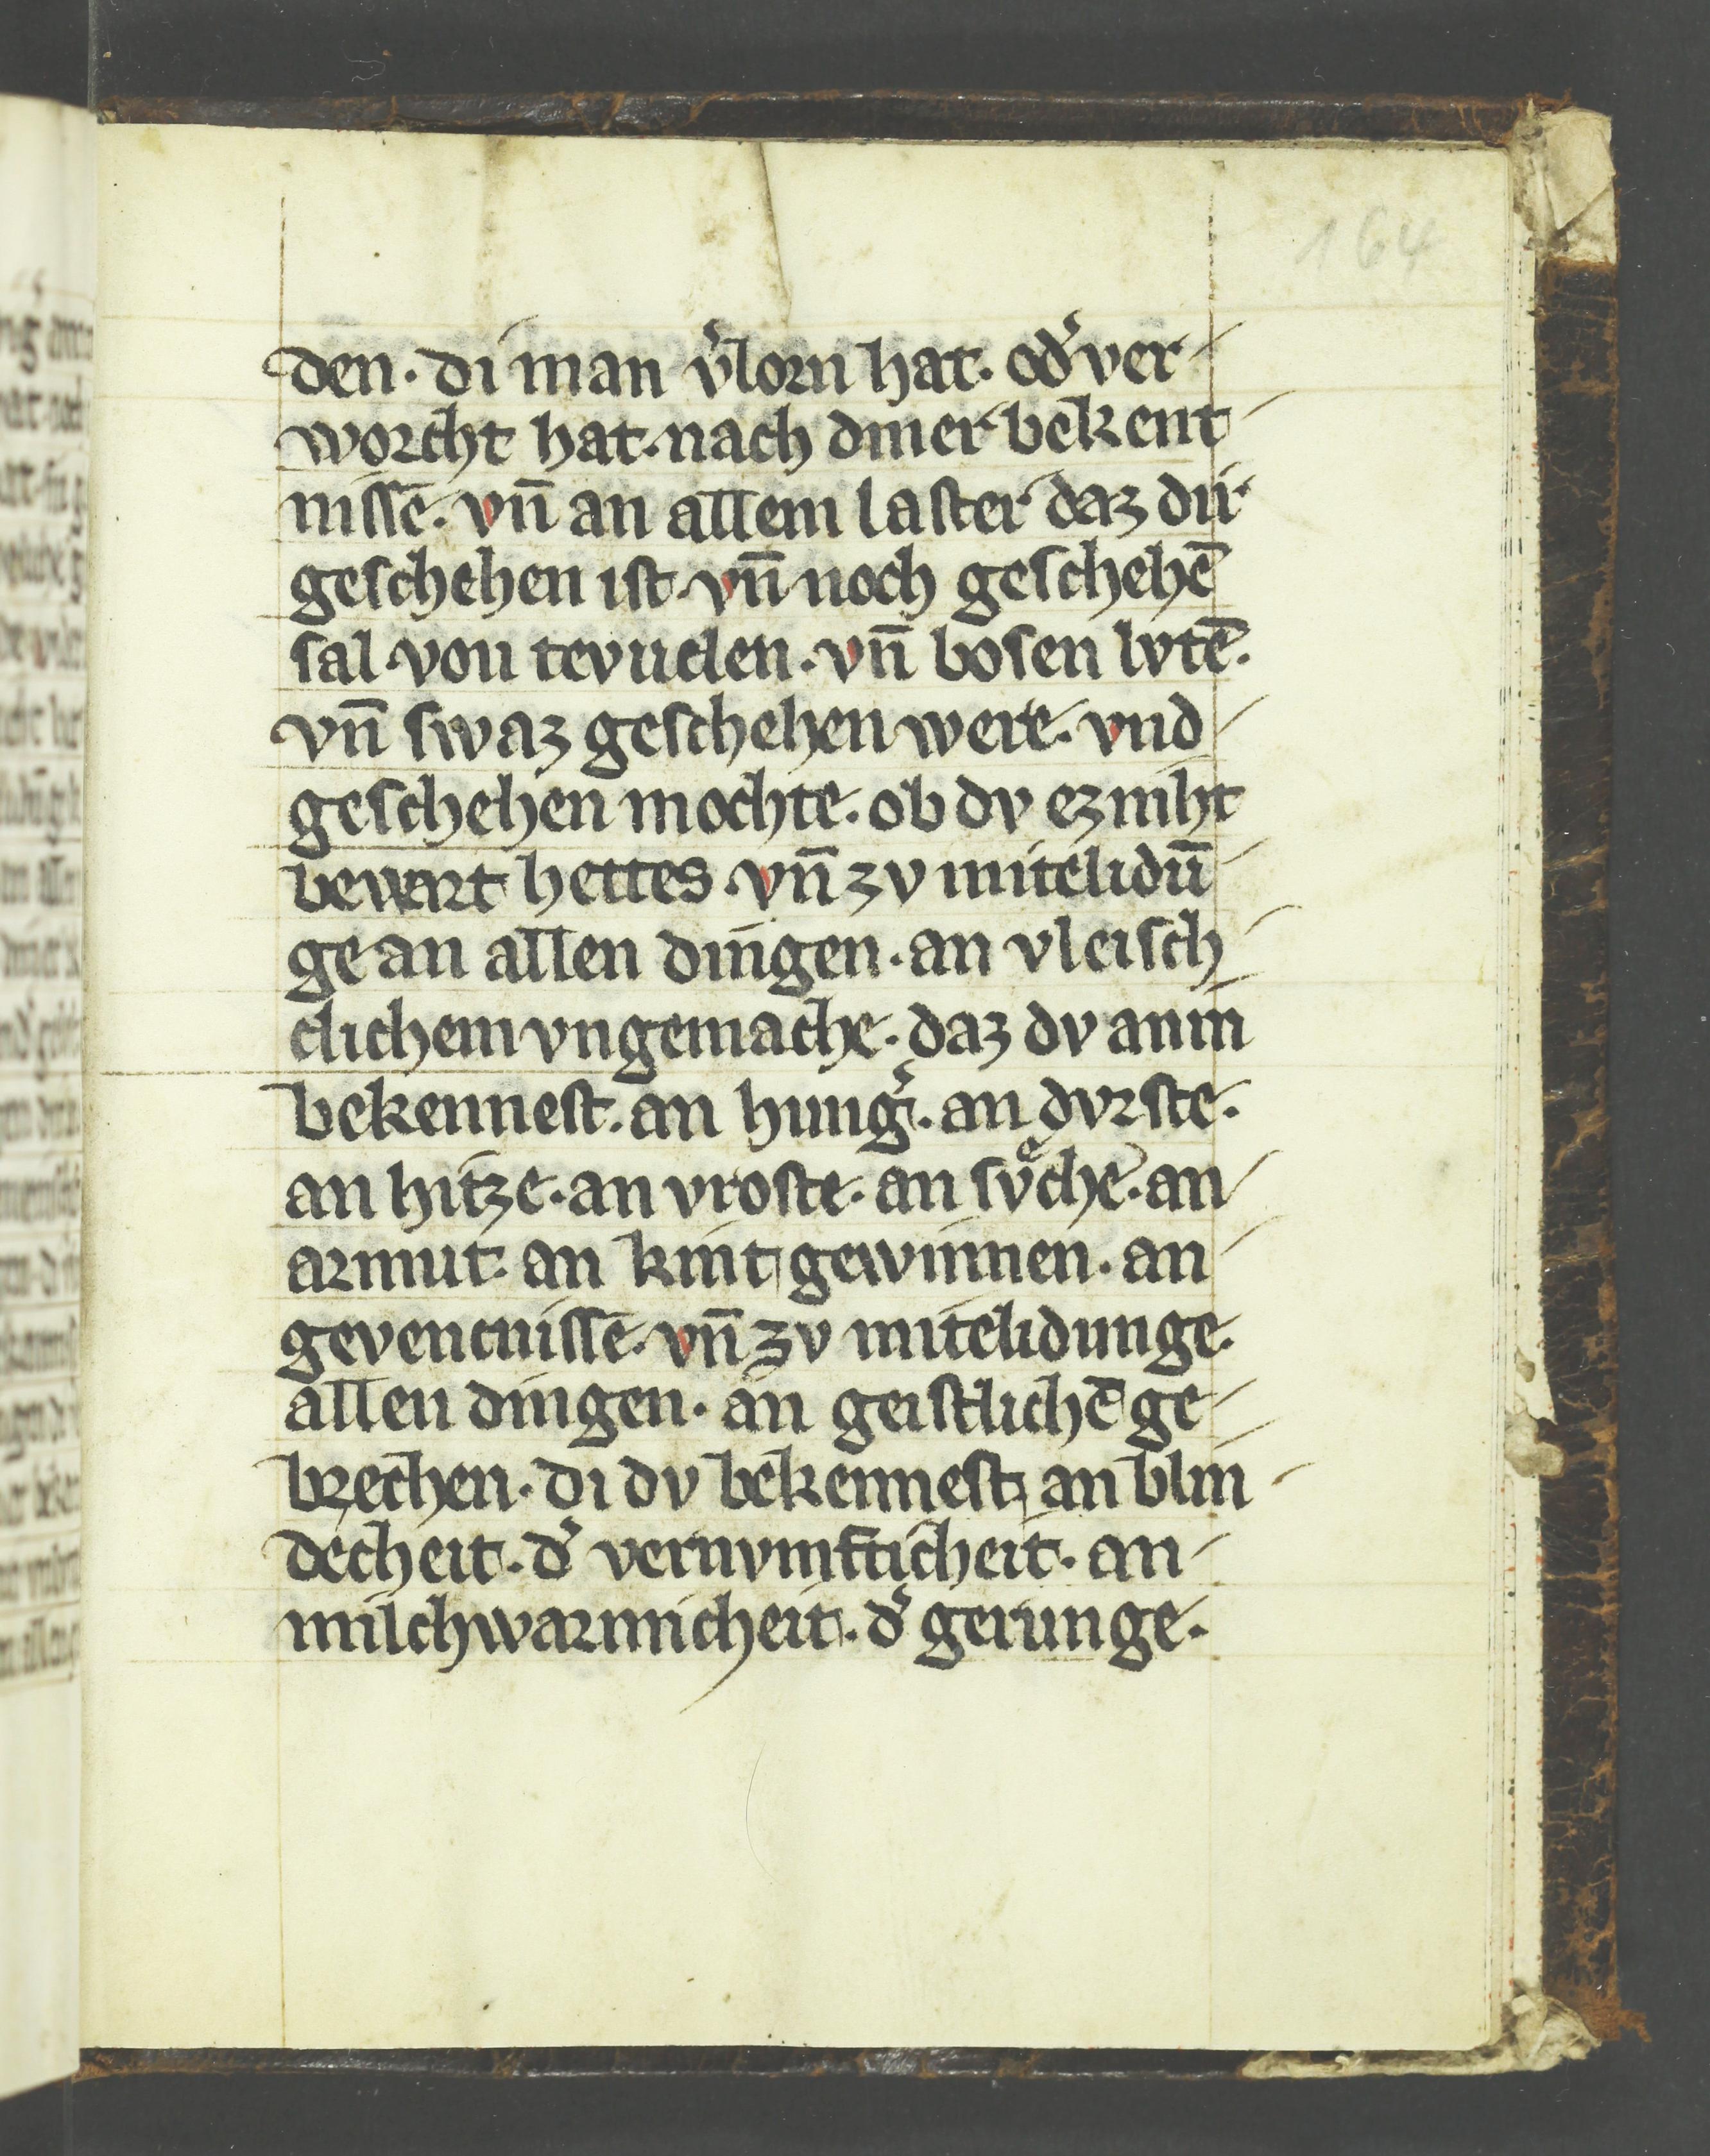 164
den. di man v᷑lorn hat. od᷑ ver
worcht hat. nach diner bekent
nisse. vn̄ an allem laster daz dir
geschehen ist. vn̄ noch geschehē
sal von tevuelen. vn̄ bosen lvtē.
vn̄ swaz geschehen were. vnd
geschehen mochte. ob dv ez niht
bewart hettes. vn̄ zv mitelidū
ge an allen dingen. an vleisch
clichem vngemache. daz dv an in
bekennest. an hung᷑. an dvrste.
an hitze. an vroste. an svͤche. an
armut. an kint gewinnen. an
gevencnisse. vn̄ zv mitelidunge.
allen dingen. an geistlichē ge
brechen. di dv bekennest. an blin
decheit. d᷑ vernvmfticheit. an
milchwarmicheit. d᷑ gerunge.